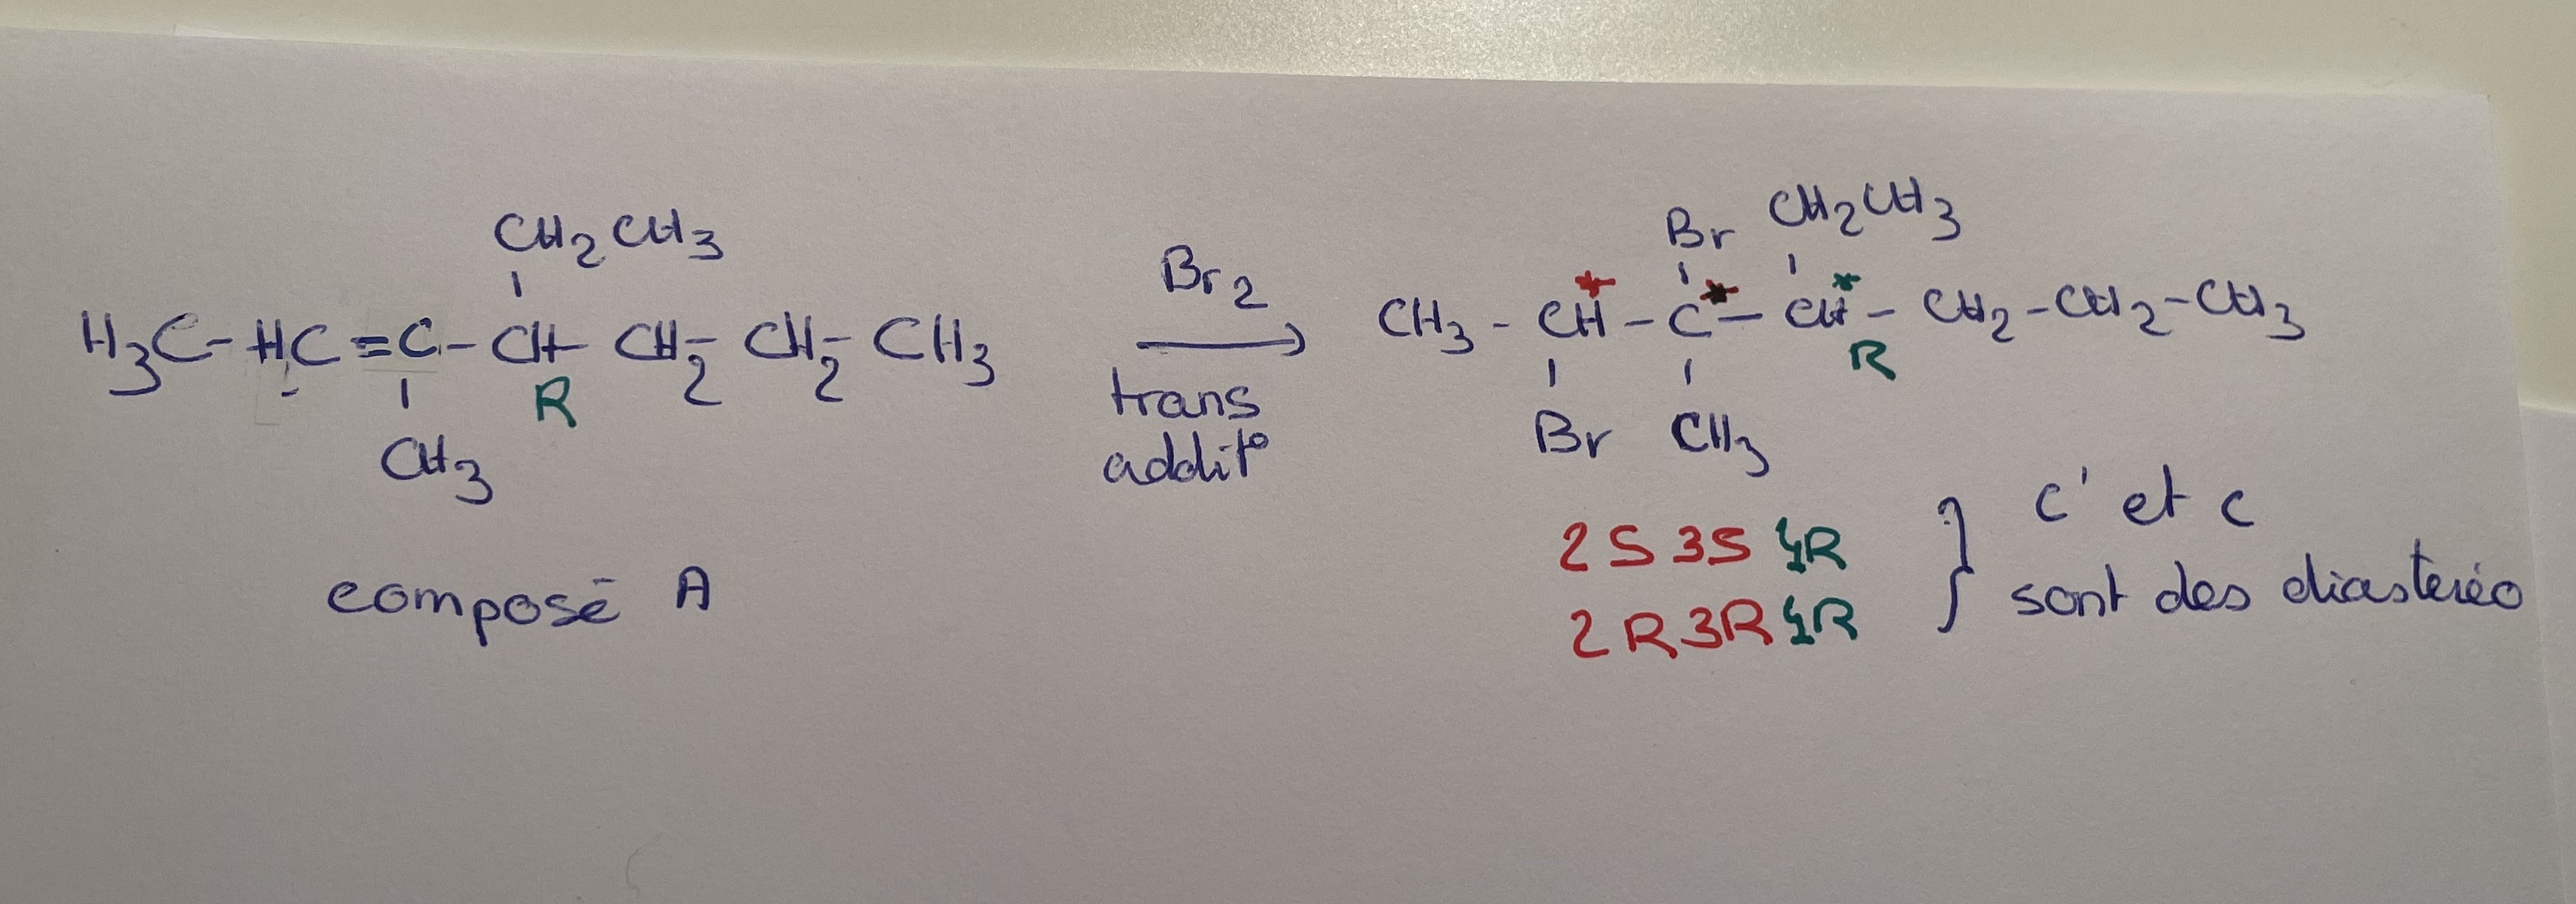 CH2CH3
H3C-HC=C-CH-CH2-CH2-CH3
R
CH3
composé A
Br2
trans
addit°
Br CH2CH3
CH3-CH*-C*-CH*-CH2-CH2-CH3
R
Br CH3
2S 3S 4R
2R 3R 4R
} c' et c
sont des diasteréo